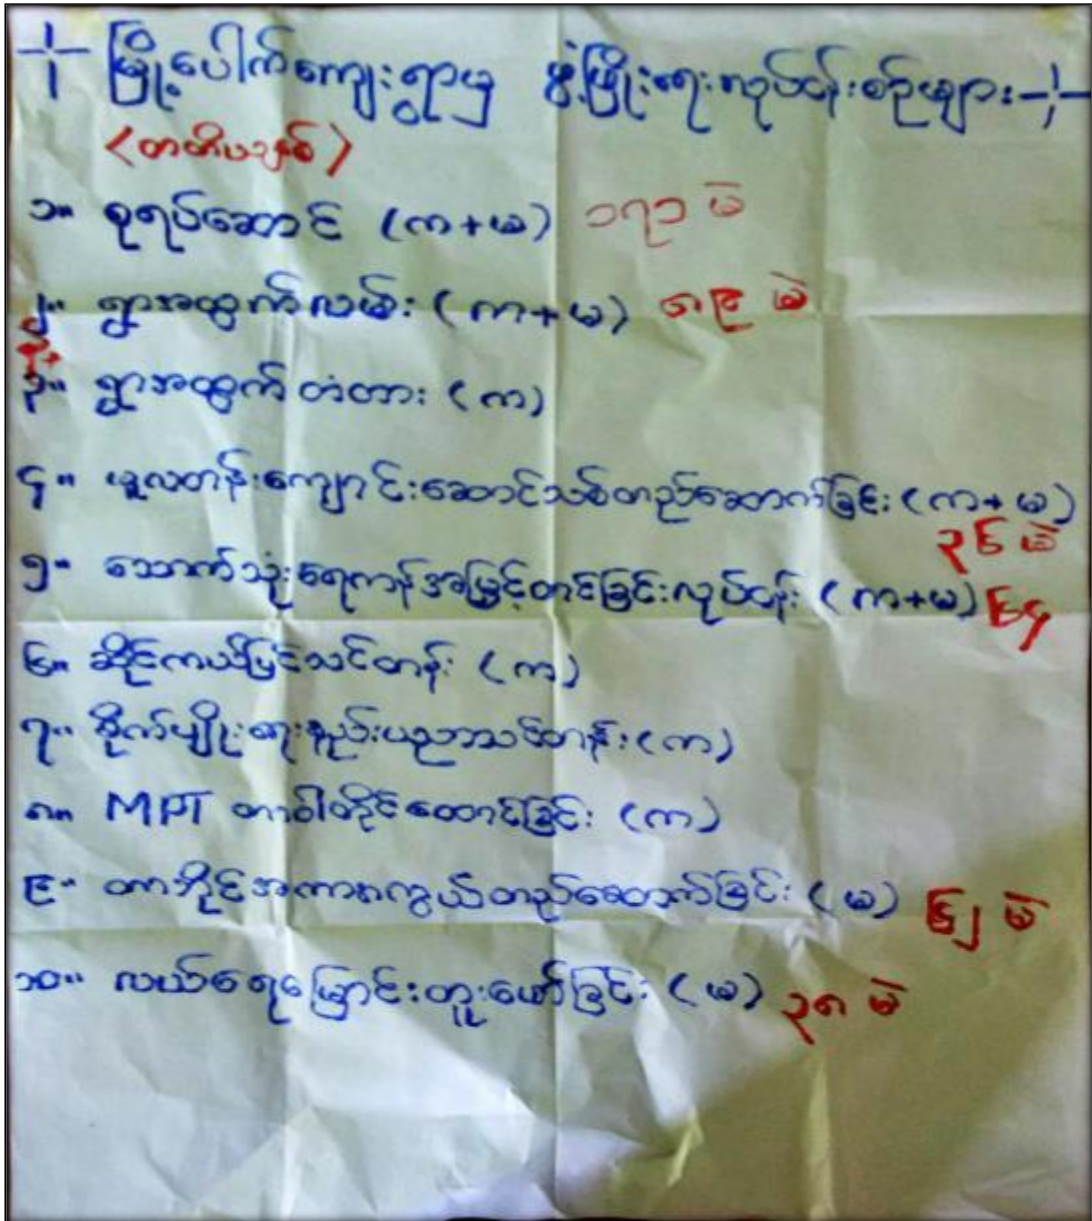 မြို့ပေါက်ကျေးရွာမှ ဖွံ့ဖြိုးရေးလုပ်ငန်းစဉ်များ
(တတိယနှစ်)
၁။ စုရပ်ဆောင် (က+မ) ၁၇၁ မဲ
၂။ ရွာအထွက်လမ်း (က+မ) ၈၉ မဲ
၃။ ရွာအထွက်တံတား (က)
၄။ မူလတန်းကျောင်းဆောင်သစ်တည်ဆောက်ခြင်း (က+မ)
၃၆ မဲ
၅။ သောက်သုံးရေကန်အမြှင့်တင်ခြင်းလုပ်ငန်း (က+မ) ၆၄
၆။ ဆိုင်ကယ်ပြင်သင်တန်း (က)
၇။ စိုက်ပျိုးရေးနည်းပညာသင်တန်း (က)
၈။ MPT တာဝါတိုင်ထောင်ခြင်း (က)
၉။ တာဘိုင်အကာအကွယ်တည်ဆောက်ခြင်း (မ) ၆၂ မဲ
၁၀။ လယ်ရေမြောင်းတူးဖော်ခြင်း (မ) ၃၈ မဲ